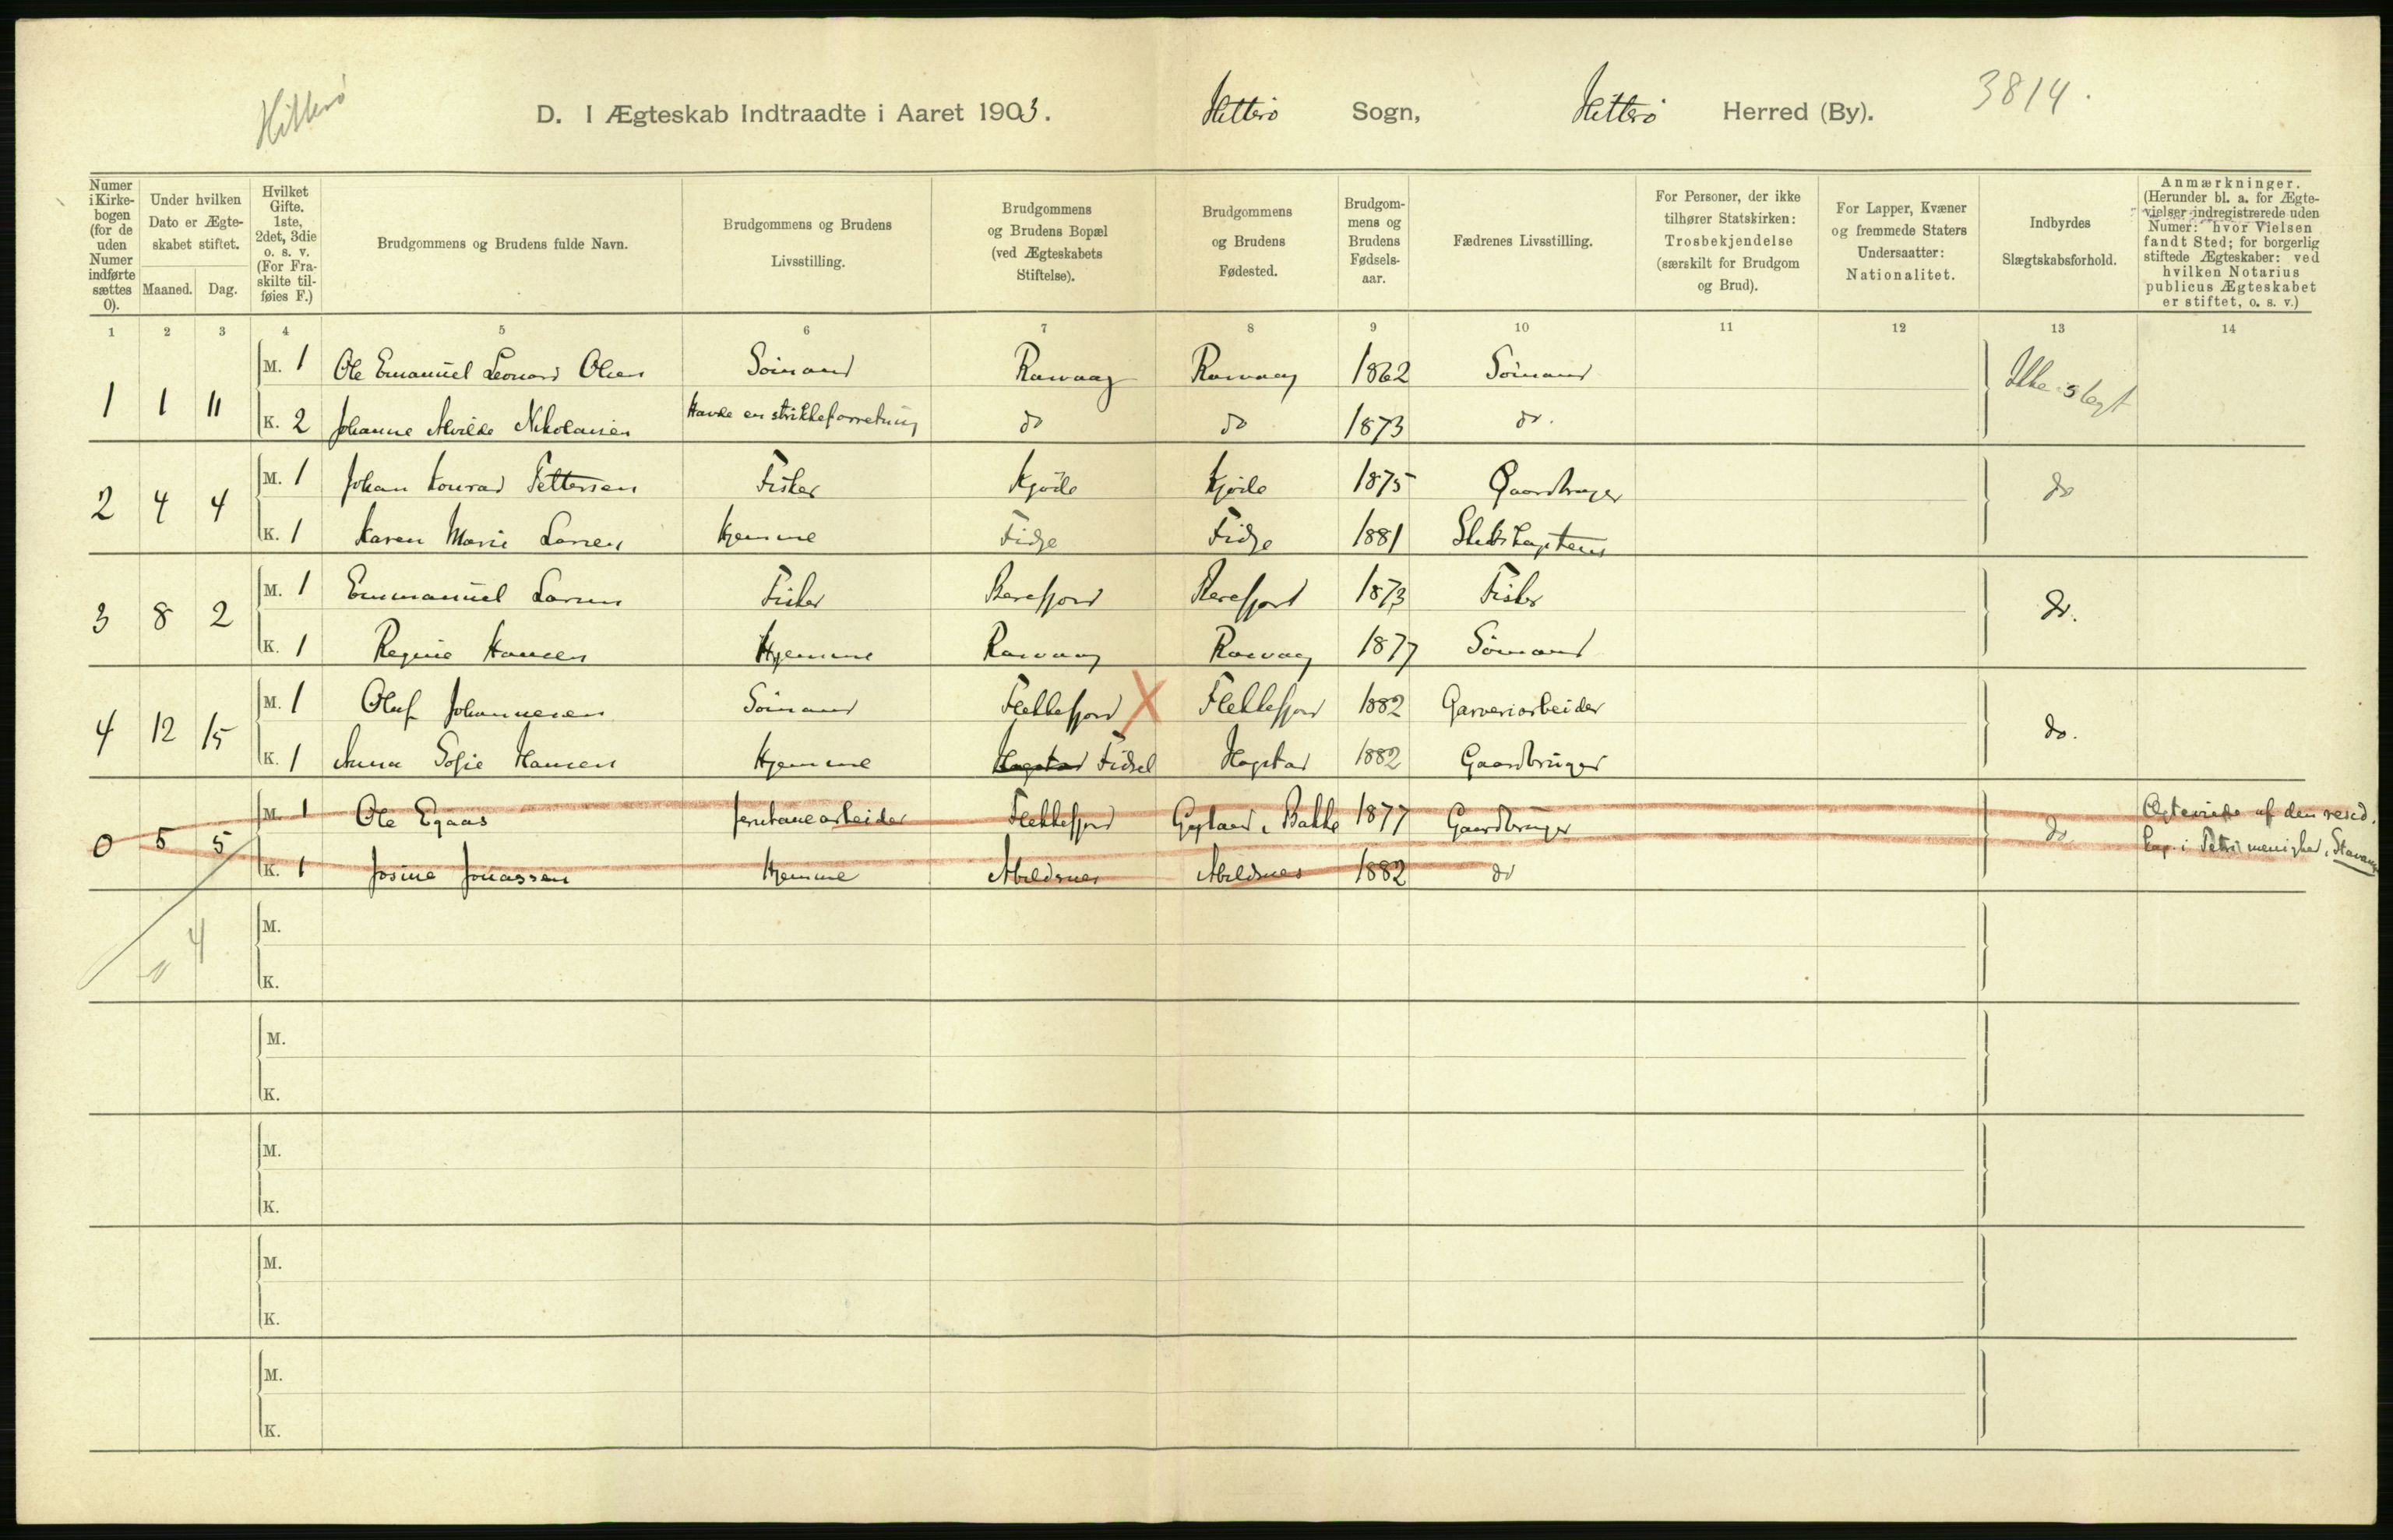 Hitterø
D. I Ægteskab Indtraadte i Aaret 1903. Hitterø Sogn, Hitterø Herred (By).
3814.
Numer i Kirkebogen (for de uden Numer indførte sættes 0).
Under hvilken Dato er Ægteskabet stiftet.
Maaned. Dag.
Hvilket Gifte. 1ste, 2det, 3die o. s. v. (For Fraskilte tilføies F.)
Brudgommens og Brudens fulde Navn.
Brudgommens og Brudens Livsstilling.
Brudgommens og Brudens Bopæl (ved Ægteskabets Stiftelse).
Brudgommens og Brudens Fødested.
Brudgommens og Brudens Fødselsaar.
Fædrenes Livsstilling.
For Personer, der ikke tilhører Statskirken: Trosbekjendelse (særskilt for Brudgom og Brud).
For Lapper, Kvæner og fremmede Staters Undersaatter: Nationalitet.
Indbyrdes Slægtskabsforhold.
Anmærkninger. (Herunder bl. a. for Ægtevielser indregistrerede uden Numer: hvor Vielsen fandt Sted; for borgerlig stiftede Ægteskaber: ved hvilken Notarius publicus Ægteskabet er stiftet, o. s. v.)
1 2 3 4 5 6 7 8 9 10 11 12 13 14
1 1 11 M. 1 Ole Emanuel Leonard Olsen Sømand Rasvaag Rasvaag 1862 Sømand Ikke slegt
K. 2 Johanne Alvilde Nikolaisen Havde en strikkeforretning do do 1873 do.
2 4 4 M. 1 Johan Konrad Pettersen Fisker Kjøde Kjøde 1875 Gaardbruger do
K. 1 Karen Marie Larsen Hjemme Fidje Fidje 1881 Skibskaptein
3 8 2 M. 1 Emmanuel Larsen Fisker Berefjord Berefjord 1873 Fisker do.
K. 1 Regine Hansen Hjemme Rasvaag Rasvaag 1877 Sømand
4 12 15 M. 1 Oluf Johannesen Sømand Flekkefjord X Flekkefjord 1882 Garveriarbeider do.
K. 1 Anna Sofie Hansen Hjemme Hagstad Fidsel Hagstad 1882 Gaardbruger
0 5 5 M. 1 Ole Egaas Jernbanearbeider Flekkefjord Gyland i Bakke 1877 Gaardbruger do. Ægteviede af den resid.
K. 1 Josine Jonassen Hjemme Abildsnes Abildsnes 1882 do Kap. i Petri menighed, Stavanger
4
M.
K.
M.
K.
M.
K.
M.
K.
M.
K.